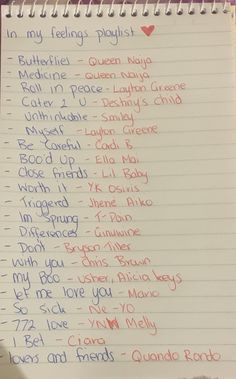 In my feelings playlist
- Butterflies - Queen Naija
- Medicine - Queen Naija
- Roll in peace - Layton Greene
- Cater 2 U - Destiny's child
- Unthinkable - Smiley
- Myself - Layton Greene
- Be Careful - Cardi B
- BOO'd UP - Ella Mai
- Close friends - Lil Baby
- Worth it - YK Osiris
- Triggered - Jhené Aiko
- Im Sprung - T-Pain
- Differences - Ginuwine
- Don't - Bryson Tiller
- With you - Chris Brown
- my Boo - usher, Alicia keys
- let me love you - Mario
- So Sick - Ne-YO
- 772 love - YNW Melly
- I Bet - Ciara
- lovers and friends - Quando Rondo